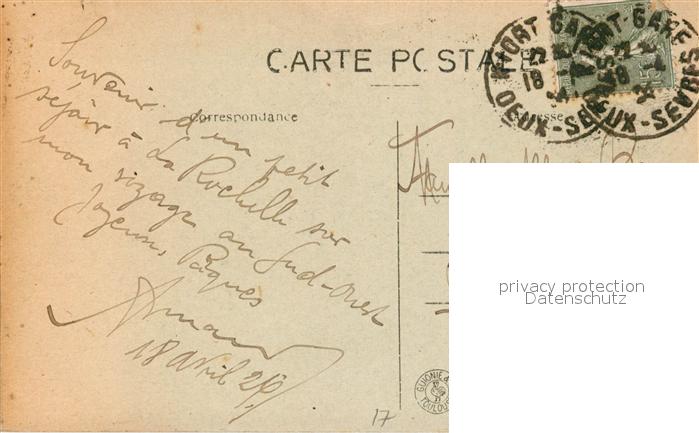 CARTE POSTALE
NIORT-GARE
DEUX-SEVRES
NIORT-GARE
DEUX-SEVRES
Correspondance
Adresse
Souvenir d'un petit
séjour à La Rochelle sur
mon voyage au Sud-Ouest
Joyeuses Pâques
Armand
18 avril 24
privacy protection
Datenschutz
TOULOUSE
17